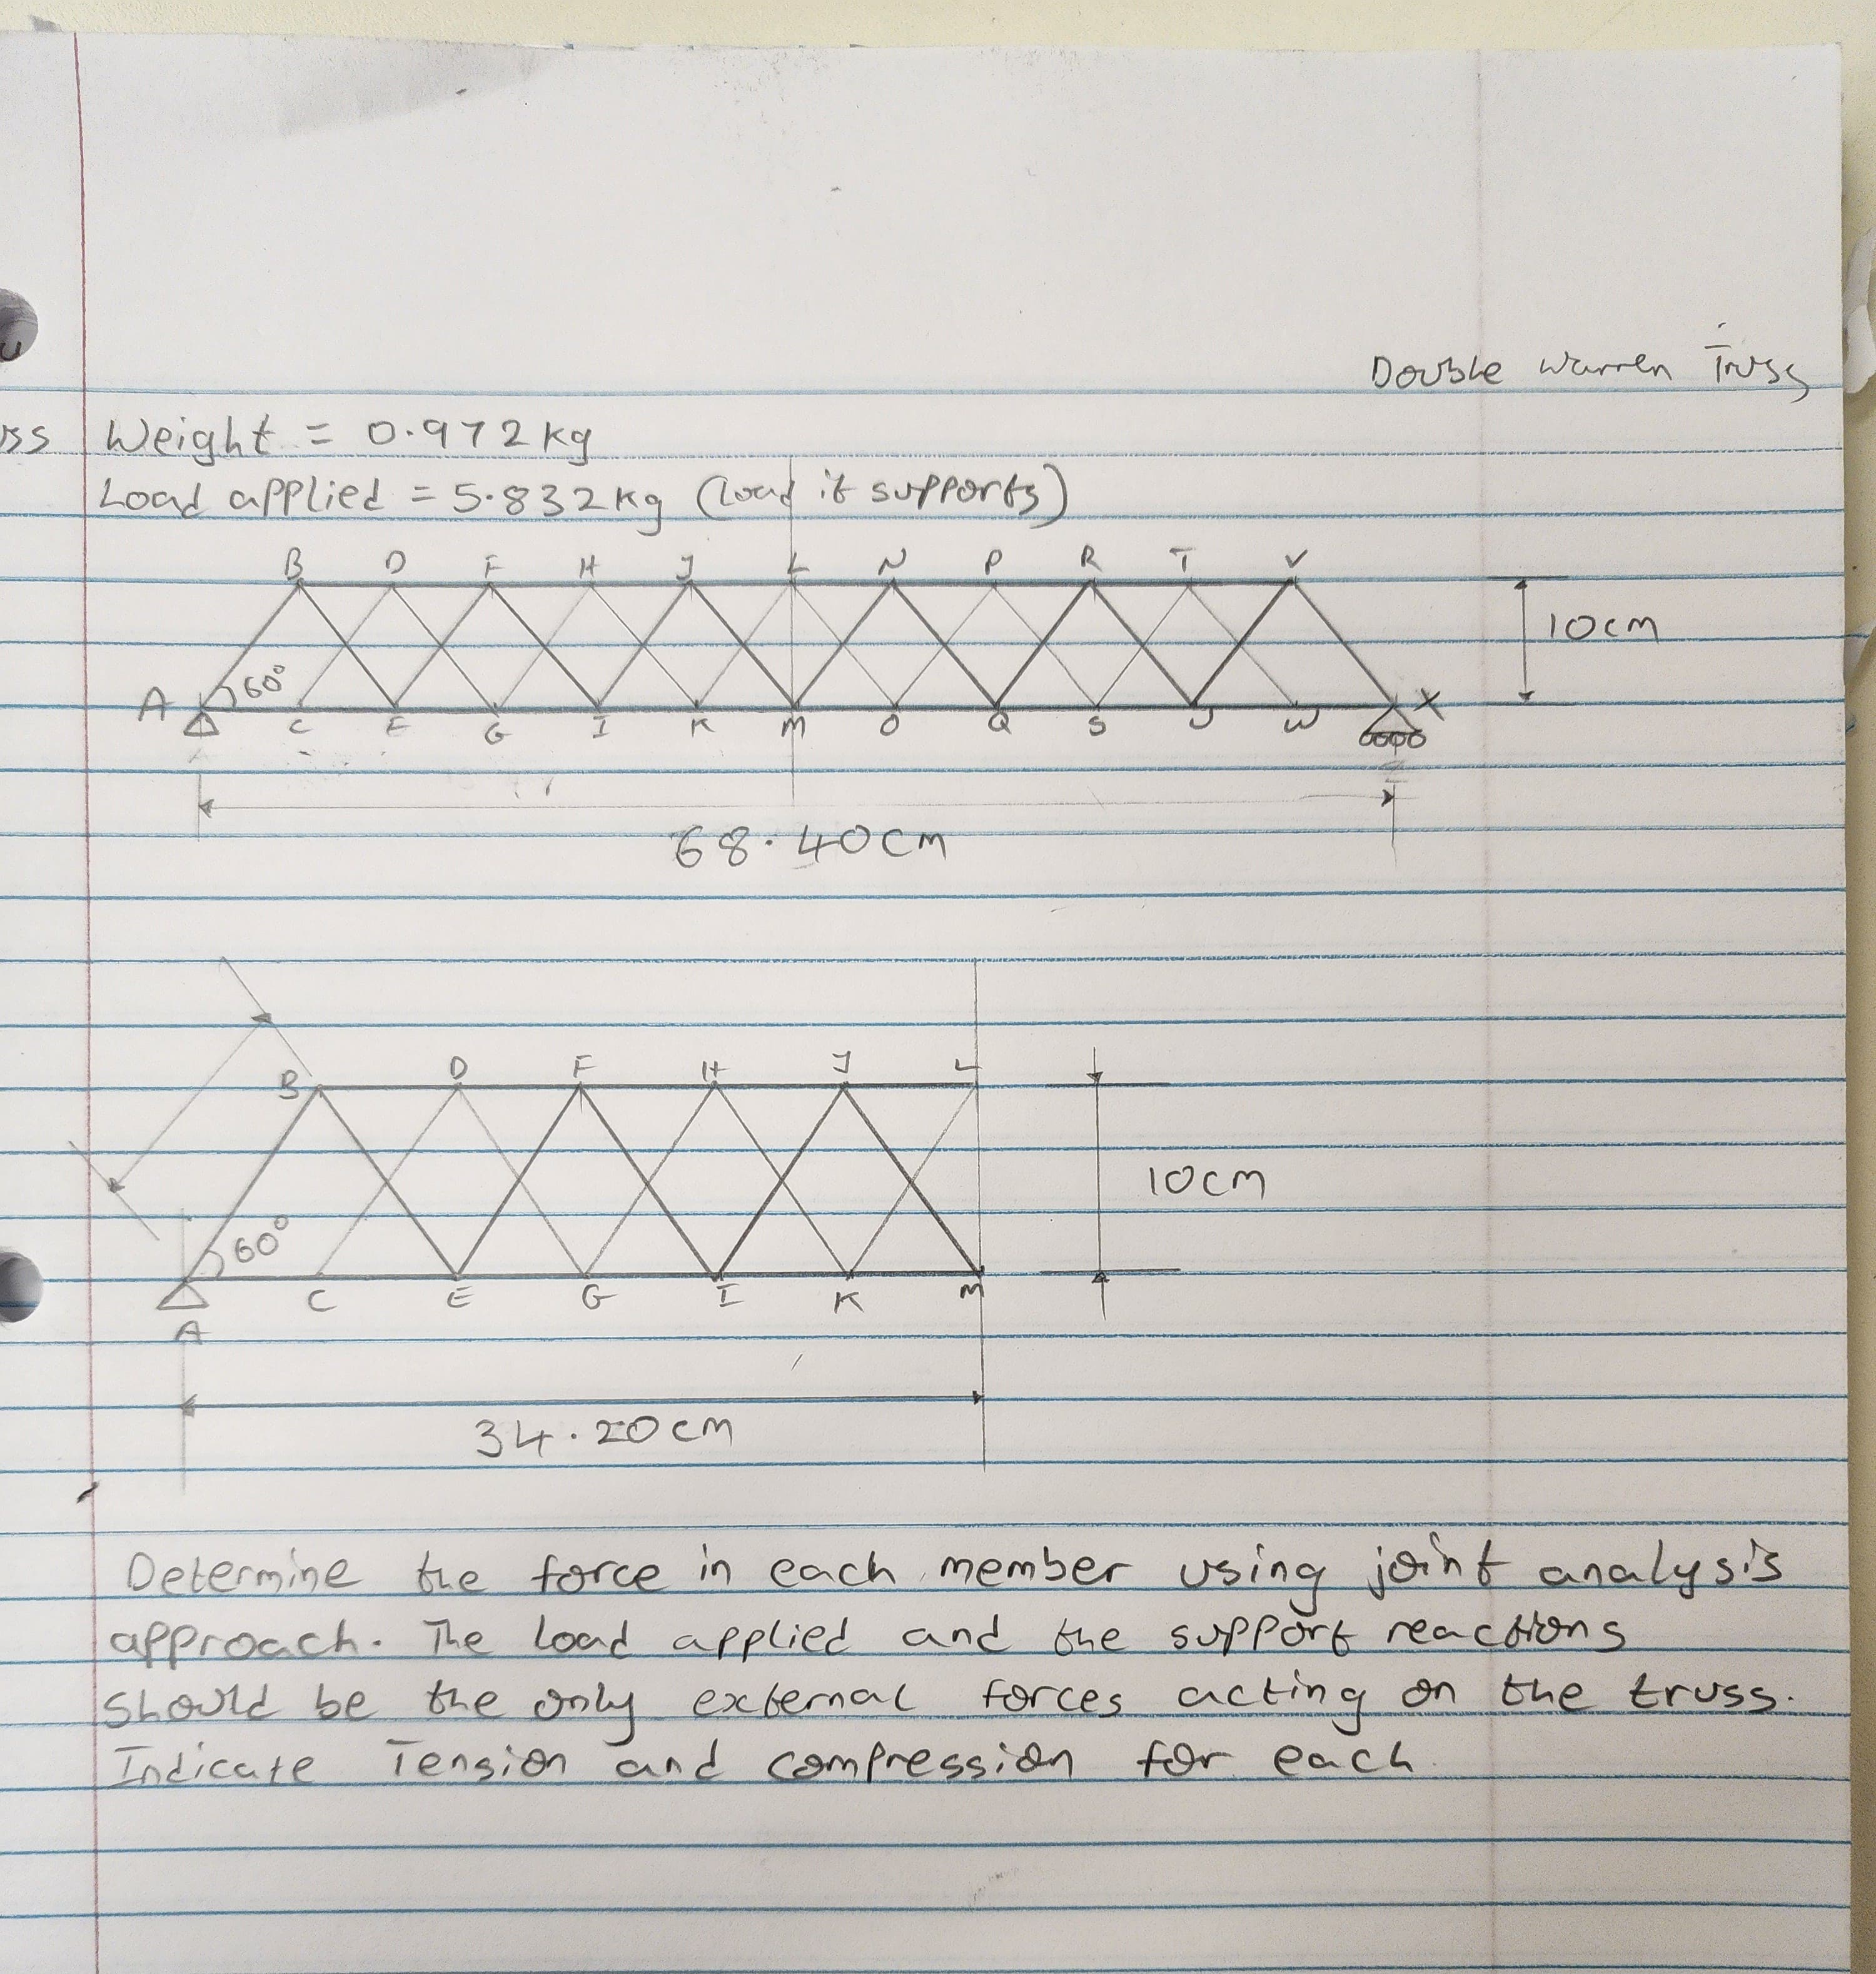 Double Warren Truss
ss Weight = 0.972kg
Load applied = 5.832kg (load it supports)
B D F H J L N P R T V
10cm
A 60° X
C E G I K M O Q S U W
68.40cm
B D F H J L
10cm
60°
C E G I K M
A
34.20cm
Determine the force in each member using joint analysis
approach. The load applied and the support reactions
should be the only external forces acting on the truss.
Indicate Tension and compression for each